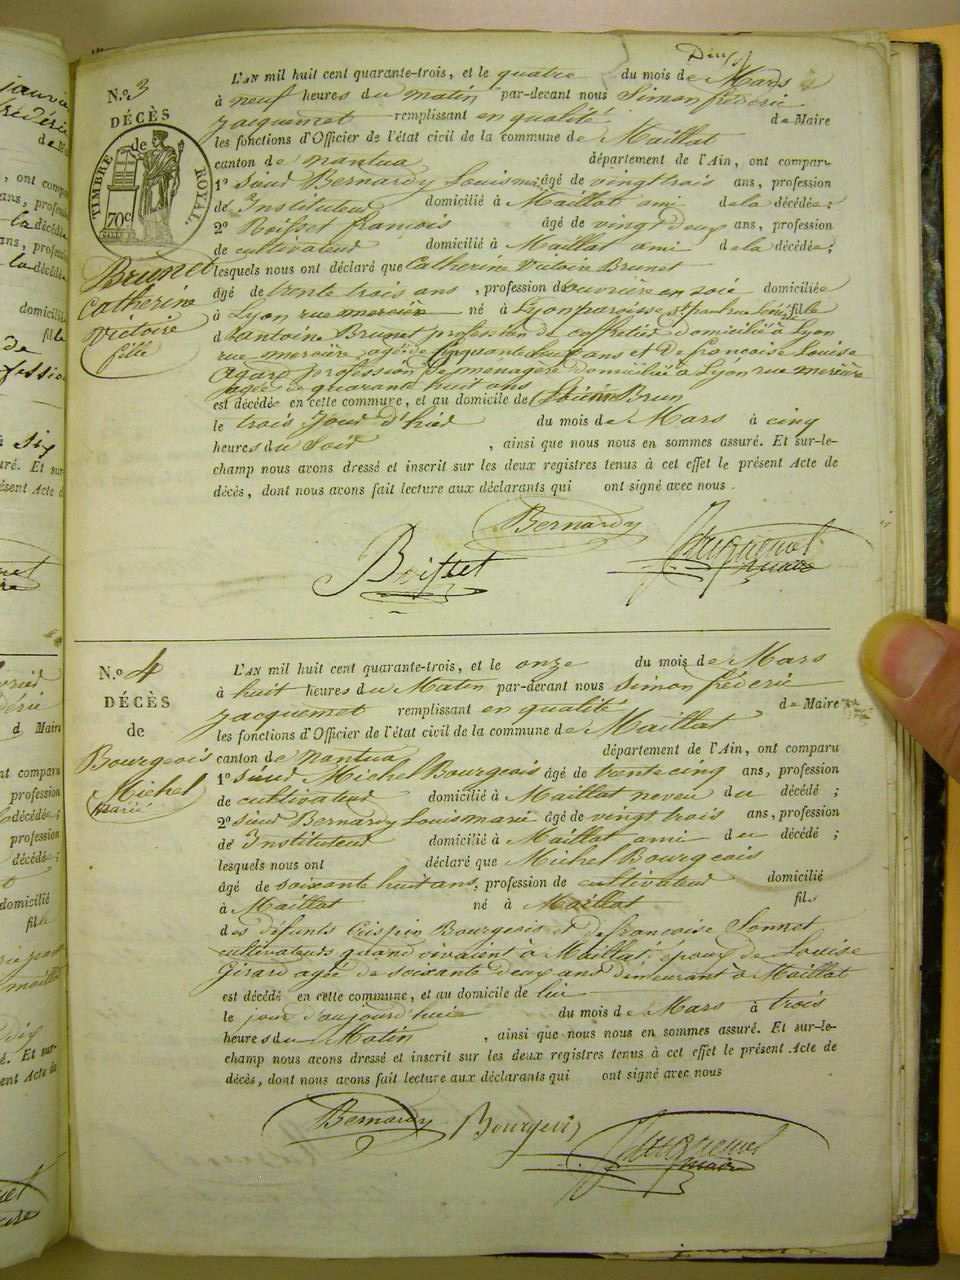 Deux
N.o 3
DÉCÈS
de
TIMBRE ROYAL
70c
Brunet
Catherine
Victoire
fille
L'AN mil huit cent quarante-trois, et le quatre du mois de Mars
à neuf heures du matin par-devant nous Simon frédéric
jacquemet remplissant en qualité de Maire
les fonctions d'Officier de l'état civil de la commune de Maillat
canton de nantua département de l'Ain, ont comparu
1o sieur Bernardy Louis marie âgé de vingt trois ans, profession
de Instituteur domicilié à Maillat ami de la décédée;
2o françois âgé de vingt deux ans, profession
de cultivateur domicilié à Maillat ami de la décédée;
lesquels nous ont déclaré que Catherine Victoire Brunet
âgé de trente trois ans, profession d'ouvrière en soie domiciliée
à Lyon rue mercière né à Lyon paroisse fille
d'antoine Brunet profession de coffretier domicilié à Lyon
rue mercière agé de ans et de françoise Louise
agard profession de menagère domiciliée à Lyon rue mercière
agée de quarante huit ans
est décédée en cette commune, et au domicile de Brun
le trois Jour d'hier du mois de Mars à cinq
heures du Soir, ainsi que nous nous en sommes assuré. Et sur-le-
champ nous avons dressé et inscrit sur les deux registres tenus à cet effet le présent Acte de
décès, dont nous avons fait lecture aux déclarants qui ont signé avec nous.
Bernardy
Jacquemet
maire
N.o 4
DÉCÈS
de
Bourgeois
Michel
marié
L'AN mil huit cent quarante-trois, et le onze du mois de Mars
à huit heures du Matin par-devant nous Simon frédéric
jacquemet remplissant en qualité de Maire
les fonctions d'Officier de l'état civil de la commune de Maillat
canton de nantua département de l'Ain, ont comparu
1o sieur Michel Bourgeois âgé de trente cinq ans, profession
de cultivateur domicilié à Maillat neveu du décédé;
2o sieur Bernardy Louis marie âgé de vingt trois ans, profession
de Instituteur domicilié à Maillat ami du décédé;
lesquels nous ont déclaré que Michel Bourgeois
âgé de soixante huit ans, profession de cultivateur domicilié
à Maillat né à Maillat fils
des defunts Crispin Bourgeois et de francoise Sonnet
cultivateurs quand vivaient à Maillat; époux de Louise
Girard agée de soixante deux ans demeurant à Maillat
est décédé en cette commune, et au domicile de lui
le jour d'aujourd'huis du mois de Mars à trois
heures du Matin, ainsi que nous nous en sommes assuré. Et sur-le-
champ nous avons dressé et inscrit sur les deux registres tenus à cet effet le présent Acte de
décès, dont nous avons fait lecture aux déclarants qui ont signé avec nous
Bernardy Bourgeois Jacquemet
maire